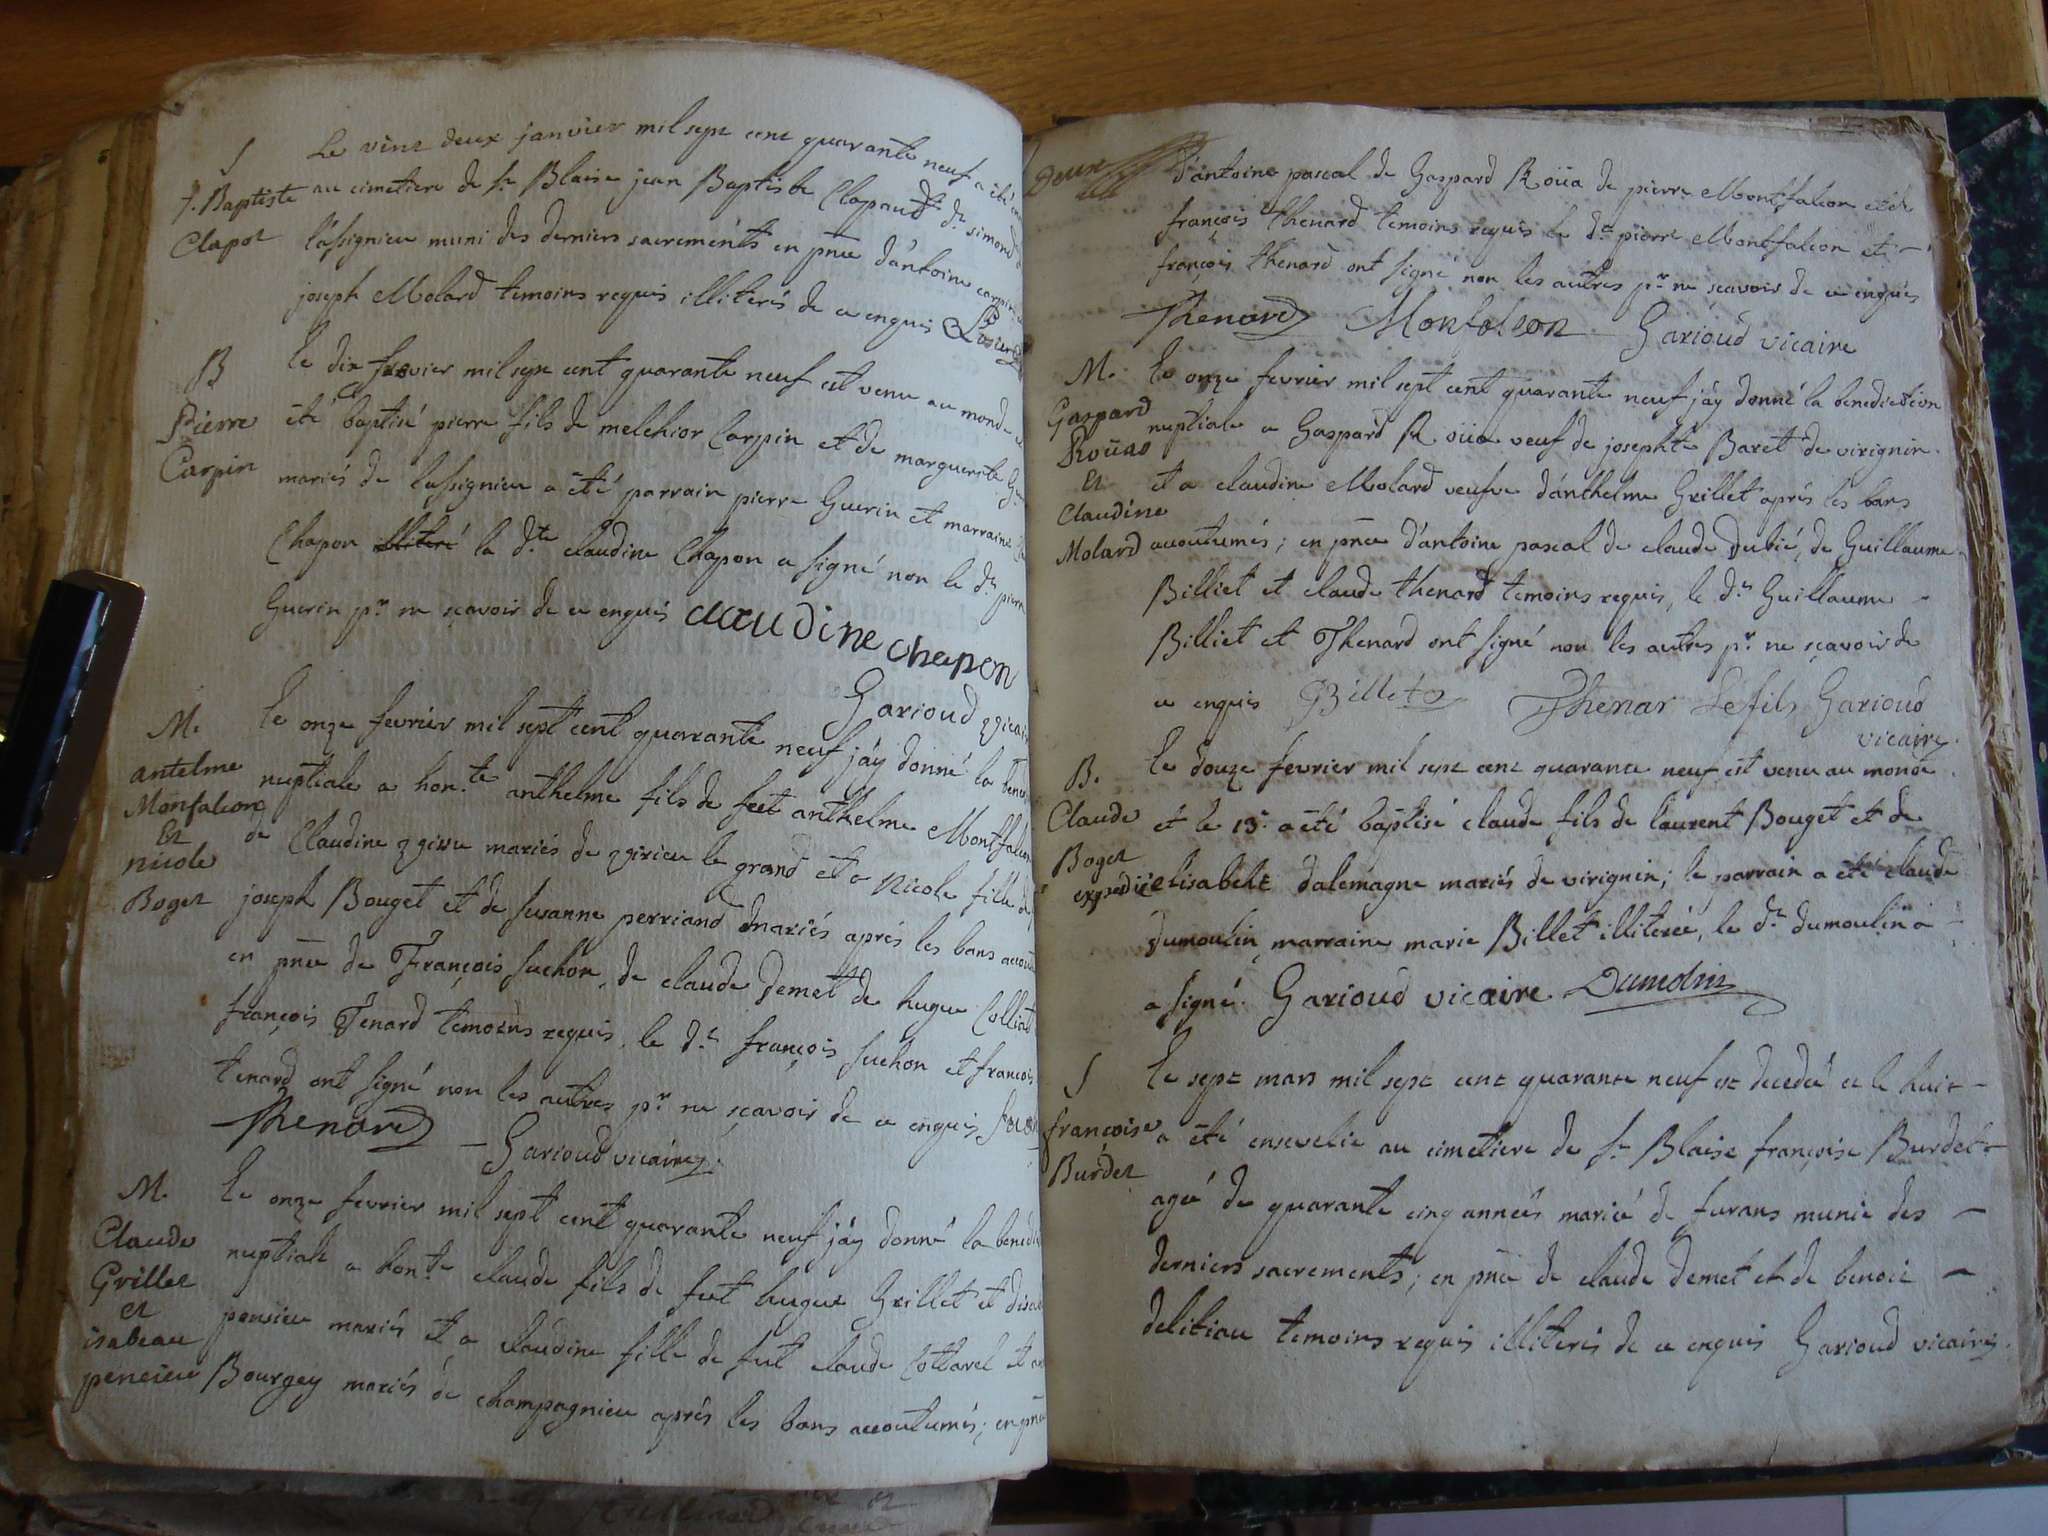 S
J. Baptiste
Clapot
Le vint deux janvier mil sept cent quarante neuf a été
au cimetiere de St Blaise jean Baptiste Clapaud dt de simond
lassignieu muni des derniers sacrements en pnce d'antoine carpin
joseph Molard temoins requis illiterés de ce enquis
B
Pierre
Carpin
le dix fevrier mil sept cent quarante neuf est venu au monde et
été baptisé pierre fils de melchior Carpin et de marguerite
mariés de lassignieu a été parrain pierre Guerin et marraine
Chapon illiteré la dte claudine Chapon a signé non le dt pierre
Guerin pr ne scavoir de ce enquis claudine chapon
Garioud vicaire
M.
antelme
Monfalcon
Et
nicole
Boget
le onze fevrier mil sept cent quarante neuf j'ay donné la bened
nuptiale a hon.te anthelme fils de feet anthelme Montfalcon
de Claudine mariés de virieu le grand et a Nicole fille de
joseph Bouget et de susanne perriand mariés aprés les bans accout
en pnce de François suchon, de claude Demet de hugue Colliat
françois Tenard temoins requis, le dt françois suchon et francois
tenard ont signé non les autres pr ne scavoir de ce enquis
Thenard Garioud vicaire
M.
Claude
Grillet
et
isabeau
pencieu
Le onze fevrier mil sept cent quarante neuf j'ay donné la bened
nuptiale a hon.te claude fils de feet hugue Grillet et
pensieu mariés et a claudine fille de feet claude Cottarel et
Bourgey mariés de champagnieu aprés les bans accoutumés; en pnce
Deux
d'antoine pascal de Gaspard Roüa de pierre Montfalcon et de
françois thenard temoins requis le dt pierre Montfalcon et
françois thenard ont signé non les autres pr ne scavoir de ce enquis
Thenard Monfalcon Garioud vicaire
M.
Gaspard
Roüas
Et
Claudine
Molard
Le onze fevrier mil sept cent quarante neuf j'ay donné la benediction
nuptiale a Gaspard Roüa veuf de josephte Baret de virignin
et a claudine Molard veufve d'anthelme Grillet aprés les bans
accoutumés; en pnce d'antoine pascal de claude Dubié, de Guillaume
Billiet et claude thenard temoins requis, le dt Guillaume
Billiet et Thenard ont signé non les autres pr ne scavoir de
ce enquis GBillet Thenar Le fils Garioud
vicaire
B.
Claude
Boget
expedié
Le douze fevrier mil sept cent quarante neuf est venu au monde
et le 13e a été baptisé claude fils de laurent Bouget et de
elisabeht dalemagne mariés de virignin; le parrain a été claude
Dumoulin marraine marie Billet illiterée, le dt dumoulin a
a signé. Garioud vicaire Dumolin
S
françoise
Burdet
Le sept mars mil sept cent quarante neuf est decedée et le huit
a été ensevelie au cimetiere de St Blaise françoise Burdet
agée de quarante cinq années mariée de furans munie des
derniers sacrements; en pnce de claude Demet et de benoit
delitiau temoins requis illiterés de ce enquis Garioud vicaire